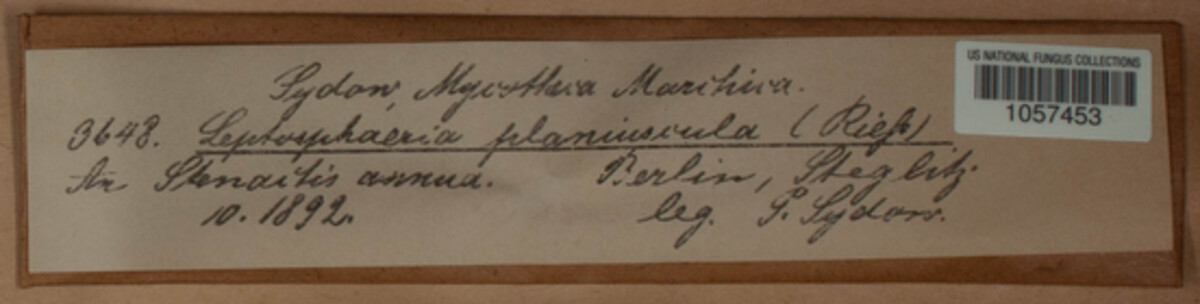 Sydow, Mycotheca Marchica.
US NATIONAL FUNGUS COLLECTIONS
1057453
3648. Leptosphaeria planiuscula (Rieß)
An Stenactis annua. Berlin, Steglitz
10. 1892. leg. P. Sydow.